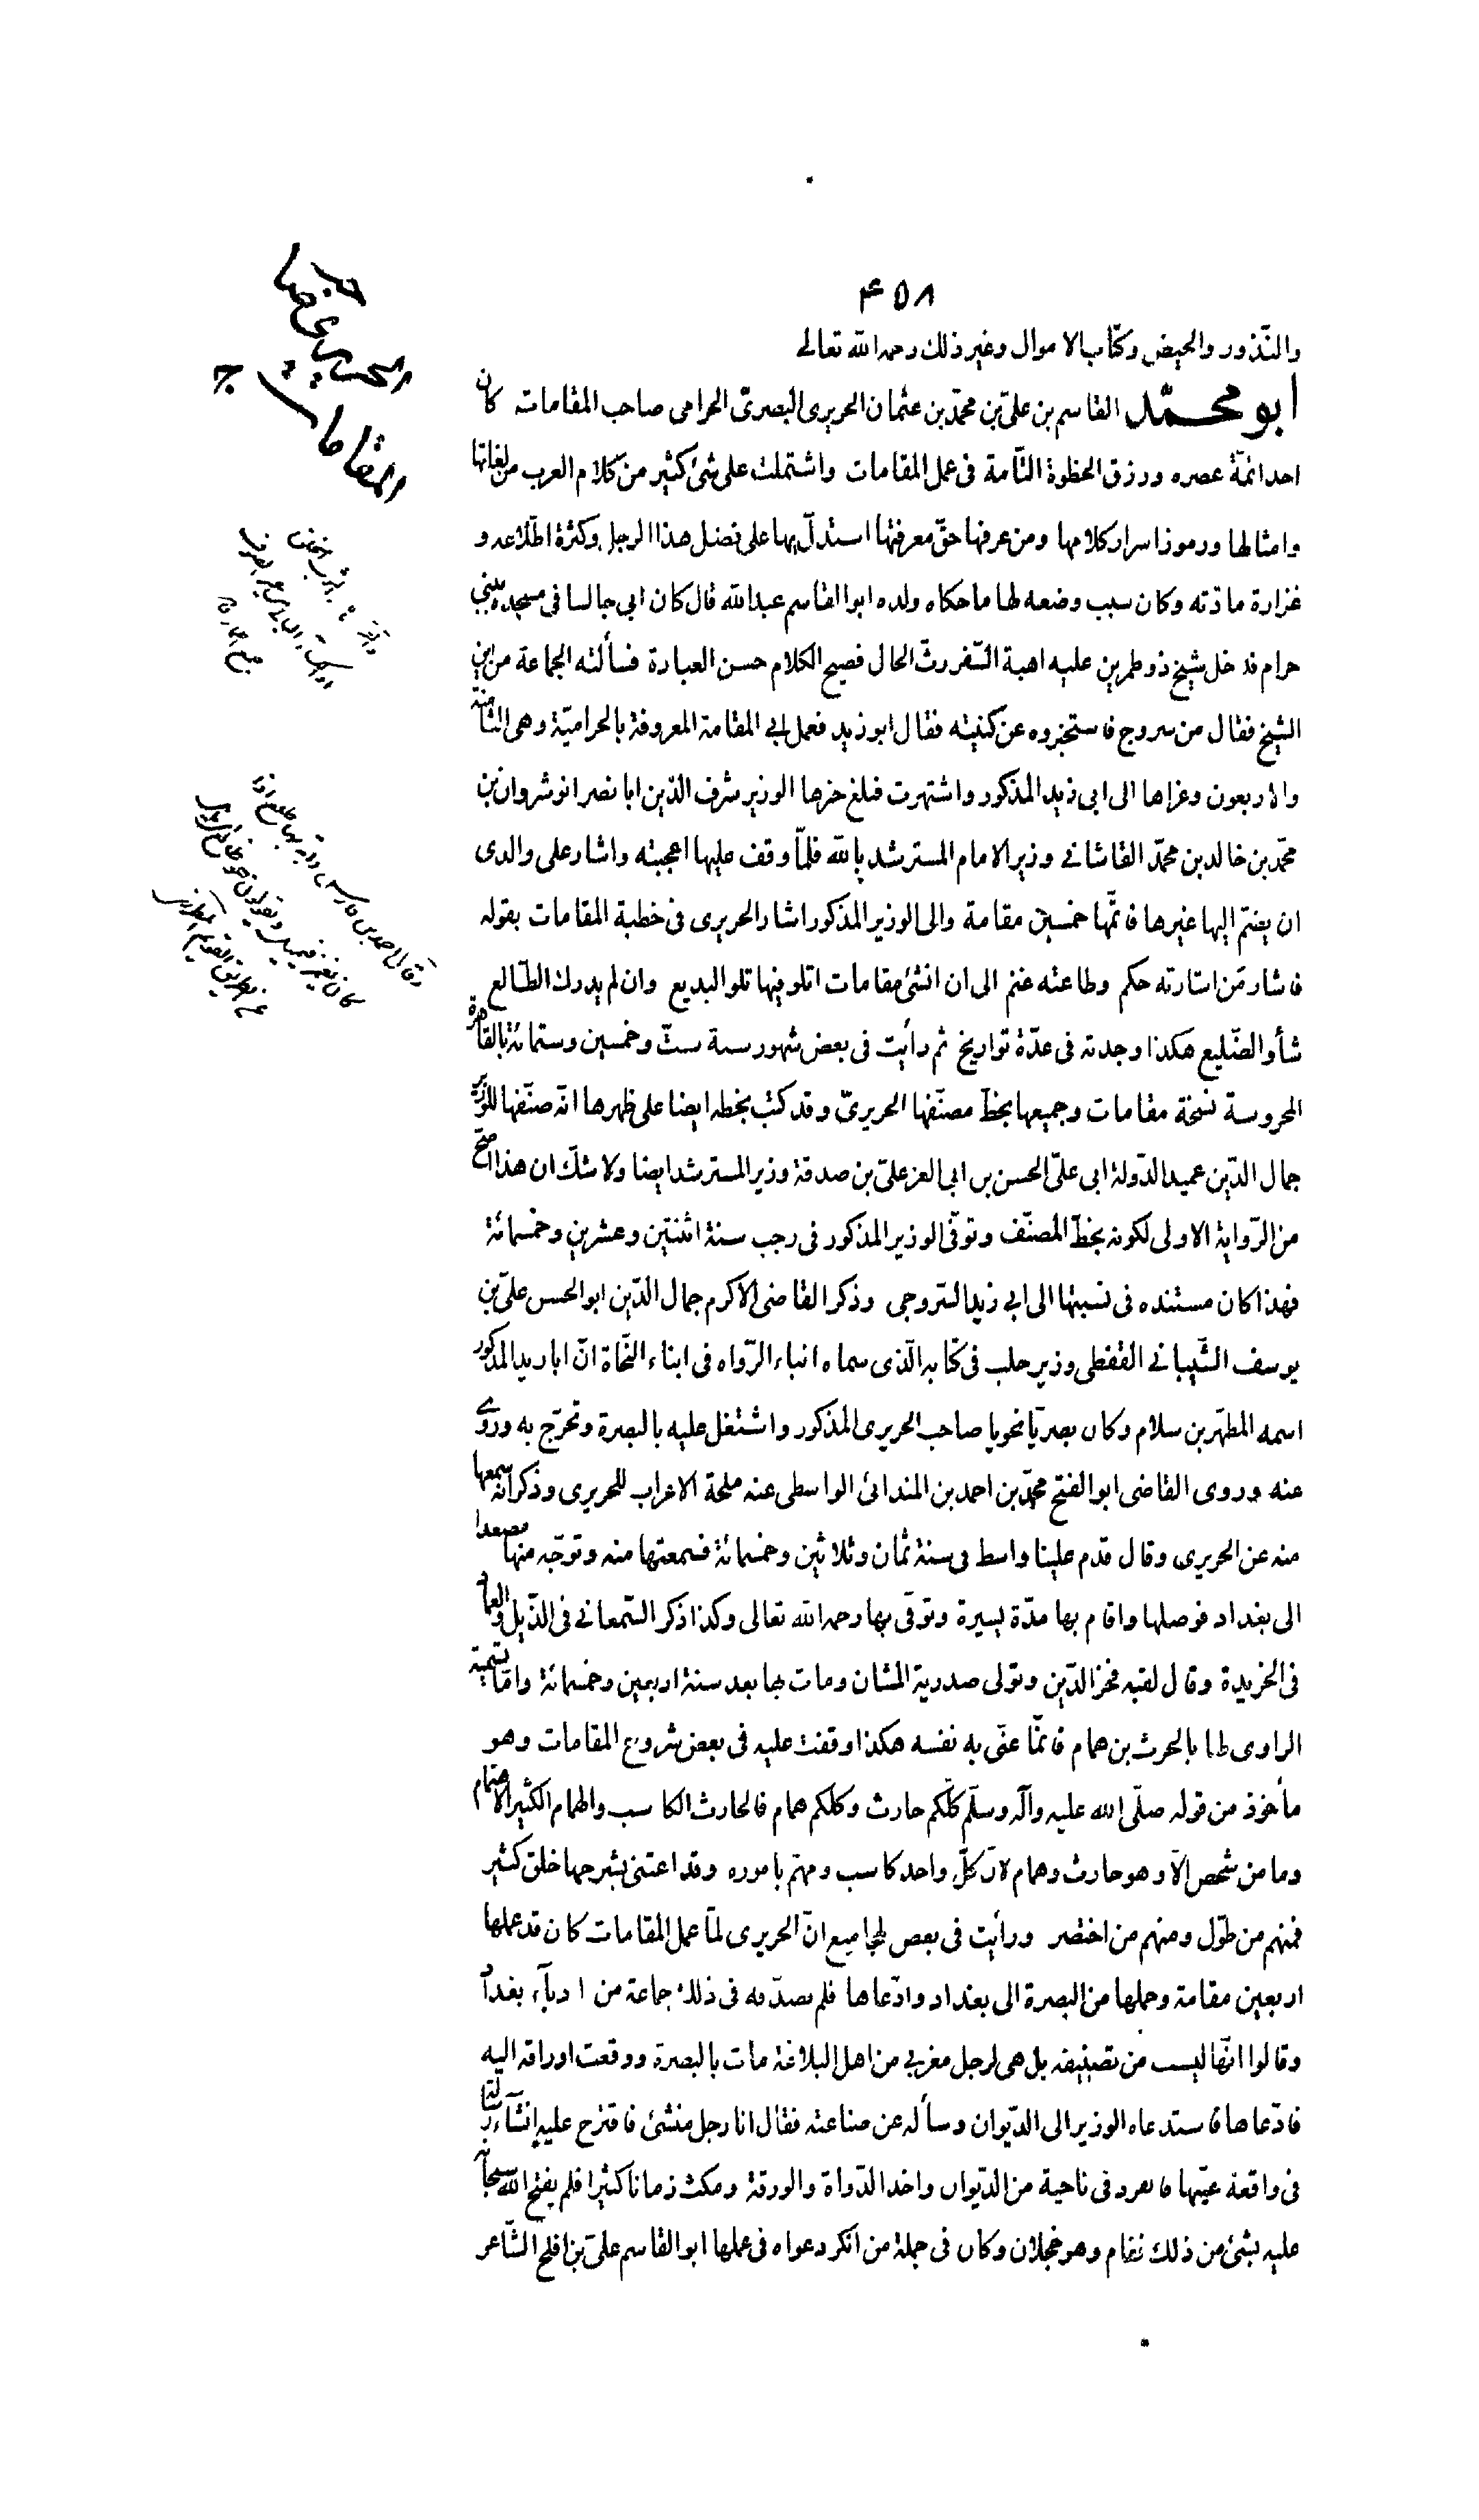 ۴۵۸
والنّذور والحيض وكتاب الاموال وغير ذلك رحمه الله تعالى
أبو محمّد القاسم بن علىّ بن محمّد بن عثمان الحريرى البصرىّ الحرامى صاحب المقامات كان
احد ائمّة عصره ورزق الحظوة التّامة فى عمل المقامات واشتملت على شئ كثير من كلام العرب من لغاتها
وامثالها ورموز اسرار كلامها ومن عرفها حقّ معرفتها استدلّ بها على فضل هذا الرجل وكثرة اطّلاعه و
غزارة مادّته وكان سبب وضعه لها ما حكاه ولده ابو القاسم عبد الله قال كان ابى جالسا فى مسجده ببنى
حرام فدخل شيخ ذو طمرين عليه اهبة السّفر رثّ الحال فصيح الكلام حسن العبارة فسألته الجماعة من اين
الشيخ فقال من سروج فاستخبروه عن كنيته فقال ابو زيد فعمل ابى المقامة المعروفة بالحراميّة وهى الثامنة
والاربعون وعزاها الى ابى زيد المذكور واشتهرت فبلغ خبرها الوزير شرف الدّين ابا نصر انوشروان بن
محمّد بن خالد بن محمّد القاشانى وزير الامام المسترشد بالله فلمّا وقف عليها اعجبته واشار على والدى
ان يضمّ اليها غيرها فاتمّها خمسين مقامة والى الوزير المذكور اشار الحريرى فى خطبة المقامات بقوله
فاشار من اشارته حكم وطاعته غنم الى ان انشئ مقامات اتلو فيها تلو البديع وان لم يدرك الظّالع
شأو الضّليع هكذا وجدته فى عدّة تواريخ ثم رأيت فى بعض شهور سنة ستّ وخمسين وستمائة بالقاهرة
المحروسة نسخة مقامات وجميعها بخطّ مصنّفها الحريرىّ وقد كتب بخطه ايضا على ظهرها انّه صنّفها للوزير
جمال الدّين عميد الدّولة ابى علىّ الحسن بن ابى العز علىّ بن صدقة وزير المسترشد ايضا ولا شكّ ان هذا اصحّ
من الرّواية الاولى لكونه بخطّ المصنّف وتوفّى الوزير المذكور فى رجب سنة اثنتين وعشرين وخمسمائة
فهذا كان مستنده فى نسبتها الى ابى زيد السّروجى وذكر القاضى الاكرم جمال الدّين ابو الحسن علىّ بن
يوسف الشّيبانى القفطى وزير حلب فى كتابه الّذى سماه انباء الرّواه فى ابناء النّحاة انّ ابا زيد المذكور
اسمه المطهّر بن سلام وكان بصريّا نحويا صاحب الحريرى المذكور واشتغل عليه بالبصرة وتخرّج به وروى
عنه وروى القاضى ابو الفتح محمّد بن احمد بن المندائى الواسطى عنه ملحة الاعراب للحريرى وذكر انّه سمعها
منه عن الحريرى وقال قدم علينا واسط فى سنة ثمان وثلاثين وخمسمائة فسمعتها منه وتوجّه منها مصعدا
الى بغداد فوصلها واقام بها مدّة يسيرة وتوفّى بها رحمه الله تعالى وكذا ذكر السّمعانى فى الذّيل والعماد
فى الخريدة وقال لقبه فخر الدّين وتولى صدرية المشان ومات بها بعد سنة اربعين وخمسمائة وامّا تسمية
الراوى لها بالحرث بن همام فانمّا عنّى به نفسه هكذا وقفت عليه فى بعض شروح المقامات وهو
مأخوذ من قوله صلّى الله عليه وآله وسلّم كلّكم حارث وكلكم همام فالحارث الكاسب والهمام الكثير الاهتمام
وما من شخص الاّ وهو حارث وهمام لانّ كلّ واحد كاسب ومهتم باموره وقد اعتنى بشرحها خلق كثير
فمنهم من طوّل ومنهم من اختصر ورأيت فى بعض المجاميع انّ الحريرى لمّا عمل المقامات كان قد عملها
اربعين مقامة وحملها من البصرة الى بغداد وادّعاها فلم يصدّقه فى ذلك جماعة من ادبآء بغداد
وقالوا انّها ليست من تصنيفه بل هى لرجل مغربى من اهل البلاغة مات بالبصرة ووقعت اوراقه اليه
فادّعاها فاستدعاه الوزير الى الدّيوان وسأله عن صناعته فقال انا رجل منشئ فاقترح عليه انشآء رسالة
فى واقعة عيّنها فانفرد فى ناحية من الدّيوان واخذ الدّواة والورقة ومكث زمانا كثيرا فلم يفتح الله سبحانه
عليه بشئ من ذلك فقام وهو خجلان وكان فى جملة من انكر دعواه فى عملها ابو القاسم علىّ بن افلح الشّاعر
الحريرى
المقامات